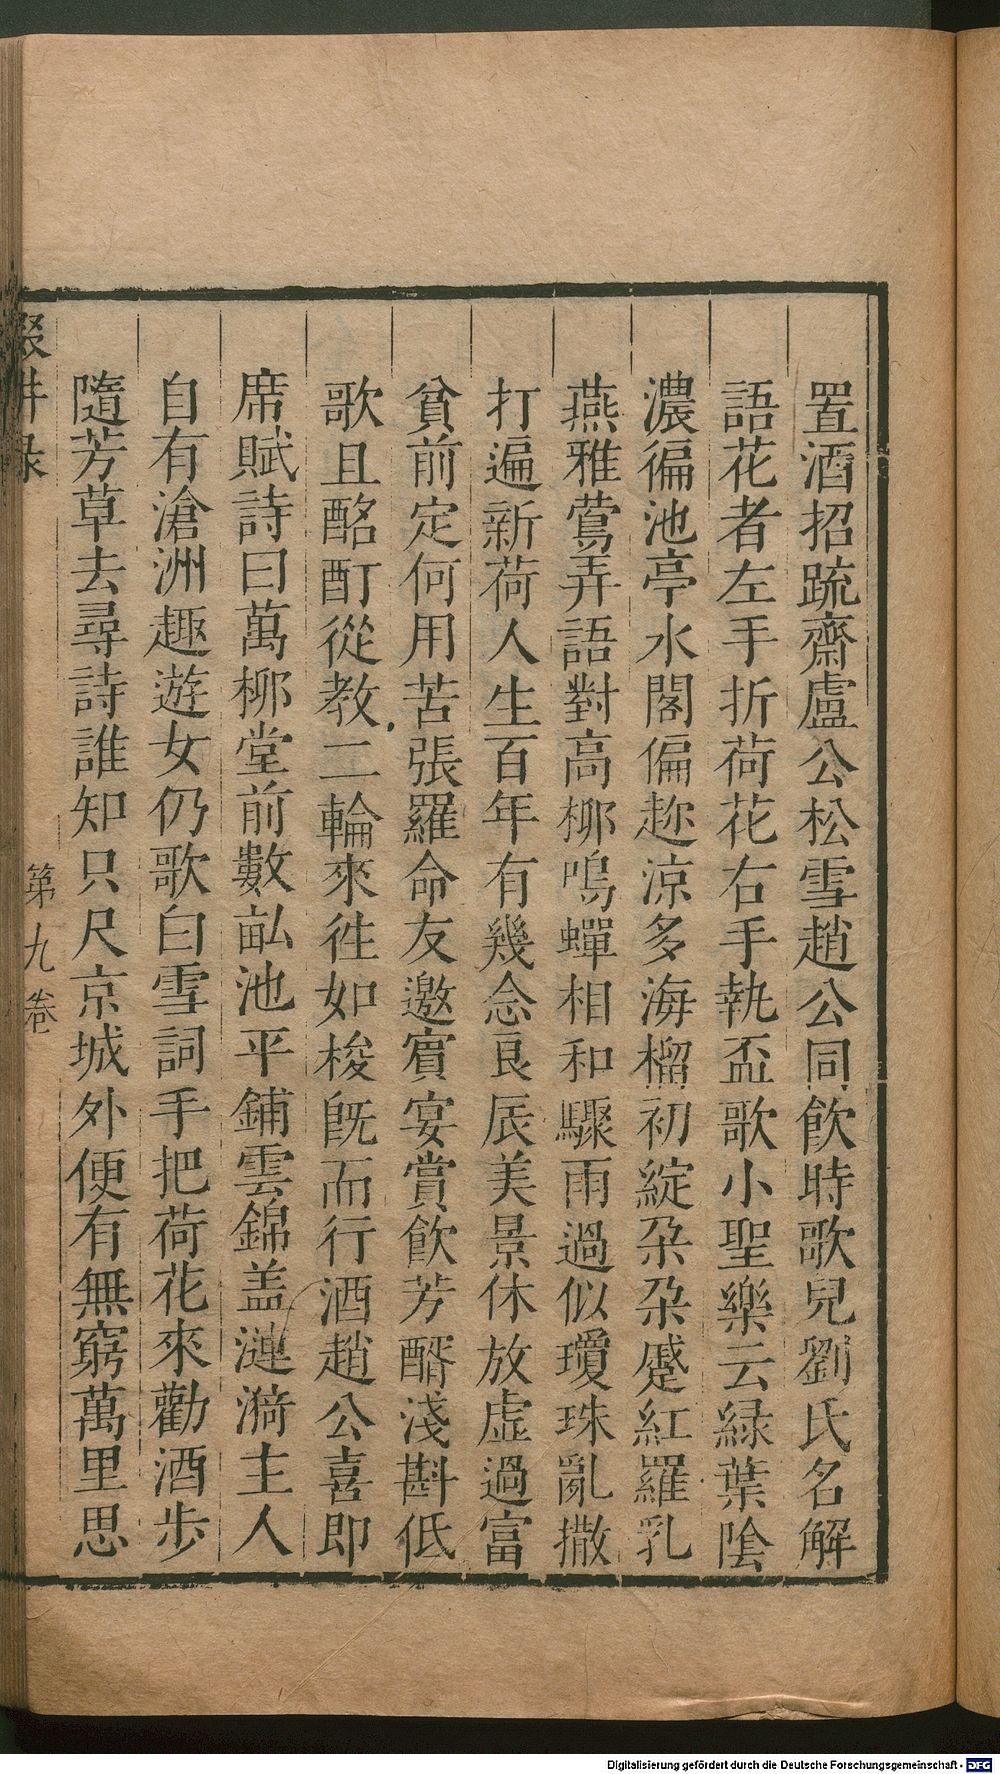 置酒招䟽齋盧公松雪趙公同飲時歌兒劉氏名解
語花者左手折荷花右手執盃歌小聖樂云緑葉隂
濃徧池亭水閣偏趂涼多海榴初綻朶朶蹙紅羅乳
燕雅鶯弄語對高柳鳴蟬相和驟雨過似瓊珠亂撒
打遍新荷人生百年有幾念良辰美景休放虚過富
貧前定何用苦張羅命友邀賓宴賞飲芳醑淺斟低
歌且酩酊從教二輪來徃如梭旣而行酒趙公喜即
席賦詩曰萬柳堂前數畝池平鋪雲錦盖漣漪主人
自有滄洲趣遊女仍歌白雪詞手把荷花來勸酒步
隨芳草去尋詩誰知只尺京城外便有無窮萬里思
輟畊录
第九卷
Digitalisierung gefördert durch die Deutsche Forschungsgemeinschaft - DFG